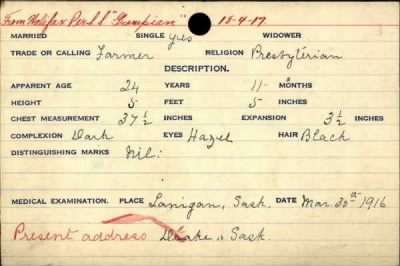 From Halifax Per S.S "Grampian" 18-4-17
MARRIED SINGLE yes WIDOWER
TRADE OR CALLING Farmer RELIGION Presbyterian
DESCRIPTION.
APPARENT AGE 24 YEARS 11 MONTHS
HEIGHT 5 FEET 5 INCHES
CHEST MEASUREMENT 37½ INCHES EXPANSION 3½ INCHES
COMPLEXION Dark EYES Hazel HAIR Black
DISTINGUISHING MARKS Nil.
MEDICAL EXAMINATION. PLACE Lanigan, Sask. DATE Mar. 30th 1916
Present address Drake, Sask.